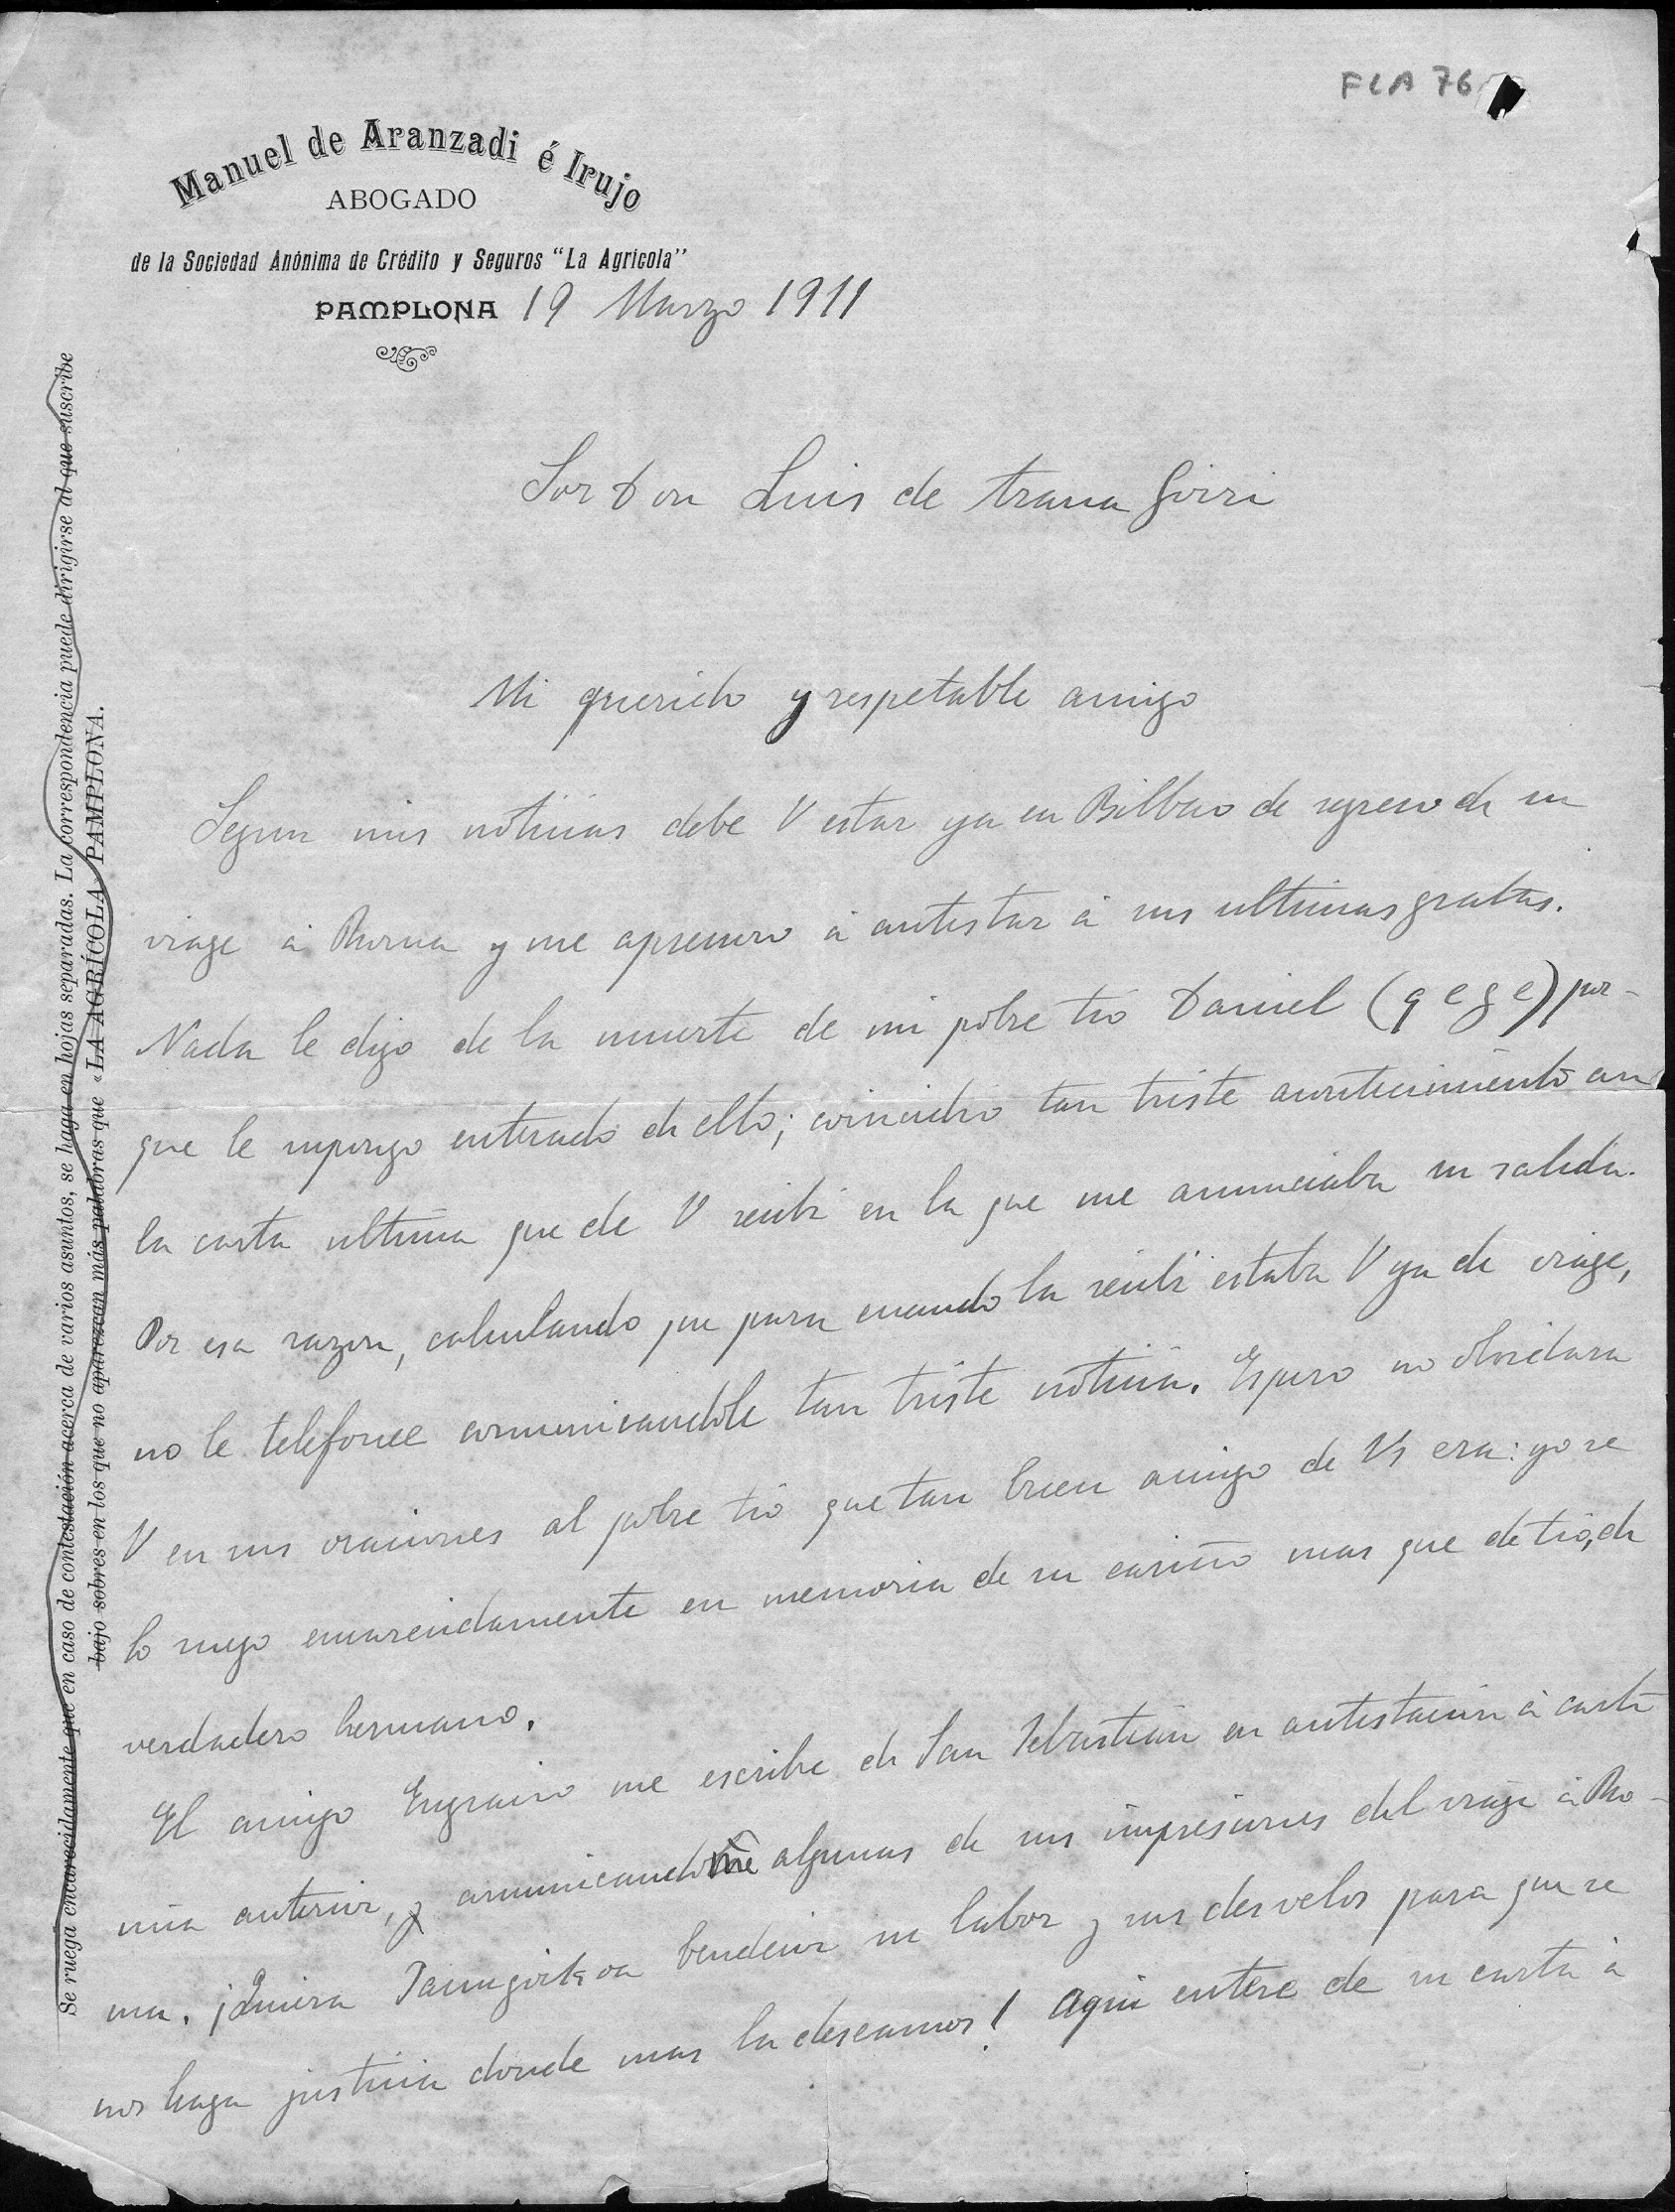 FLA 76
Manuel de Aranzadi é Irujo
ABOGADO
de la Sociedad Anónima de Crédito y Seguros "La Agrícola"
PAMPLONA 19 Marzo 1911
Se ruega encarecidamente que en caso de contestación acerca de varios asuntos, se haga en hojas separadas. La correspondencia puede dirigirse al que suscribe
bajo sobres en los que no aparezcan más palabras que «LA AGRÍCOLA» PAMPLONA.
Sor Don Luis de Arana Goiri
Mi querido y respetable amigo
Segun mis noticias debe V estar ya en Bilbao de regreso de su
viage á Roma y me apresuro á contestar á sus ultimas gratas.
Nada le digo de la muerte de mi pobre tio Daniel (q e g e) por-
que le supongo enterado de ello; coincidio tan triste acontecimiento con
la carta ultima que de V recibi en la que me anunciaba su salida.
Por esa razon, calculando que para cuando la recibi estaba V ya de viage,
no le telefonee comunicandole tan triste noticia. Espero no olvidara
V en sus oraciones al pobre tio que tan buen amigo de Vs era: yo se
lo ruego encarecidamente en memoria de su cariño mas que de tio, de
verdadero hermano.
El amigo Engracio me escribe de San Sebastián en contestacion á carta
mia anterior, y comunicandome algunas de sus impresiones del viage á Ro-
ma. ¡Quiera Jaungoikoa bendecir su labor y sus desvelos para que se
nos haga justicia donde mas la deseamos! Aqui entere de su carta á